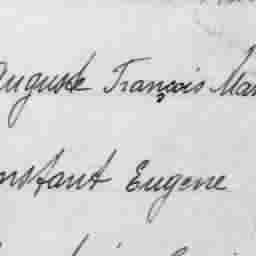 Auguste François Mar
nstant Eugene